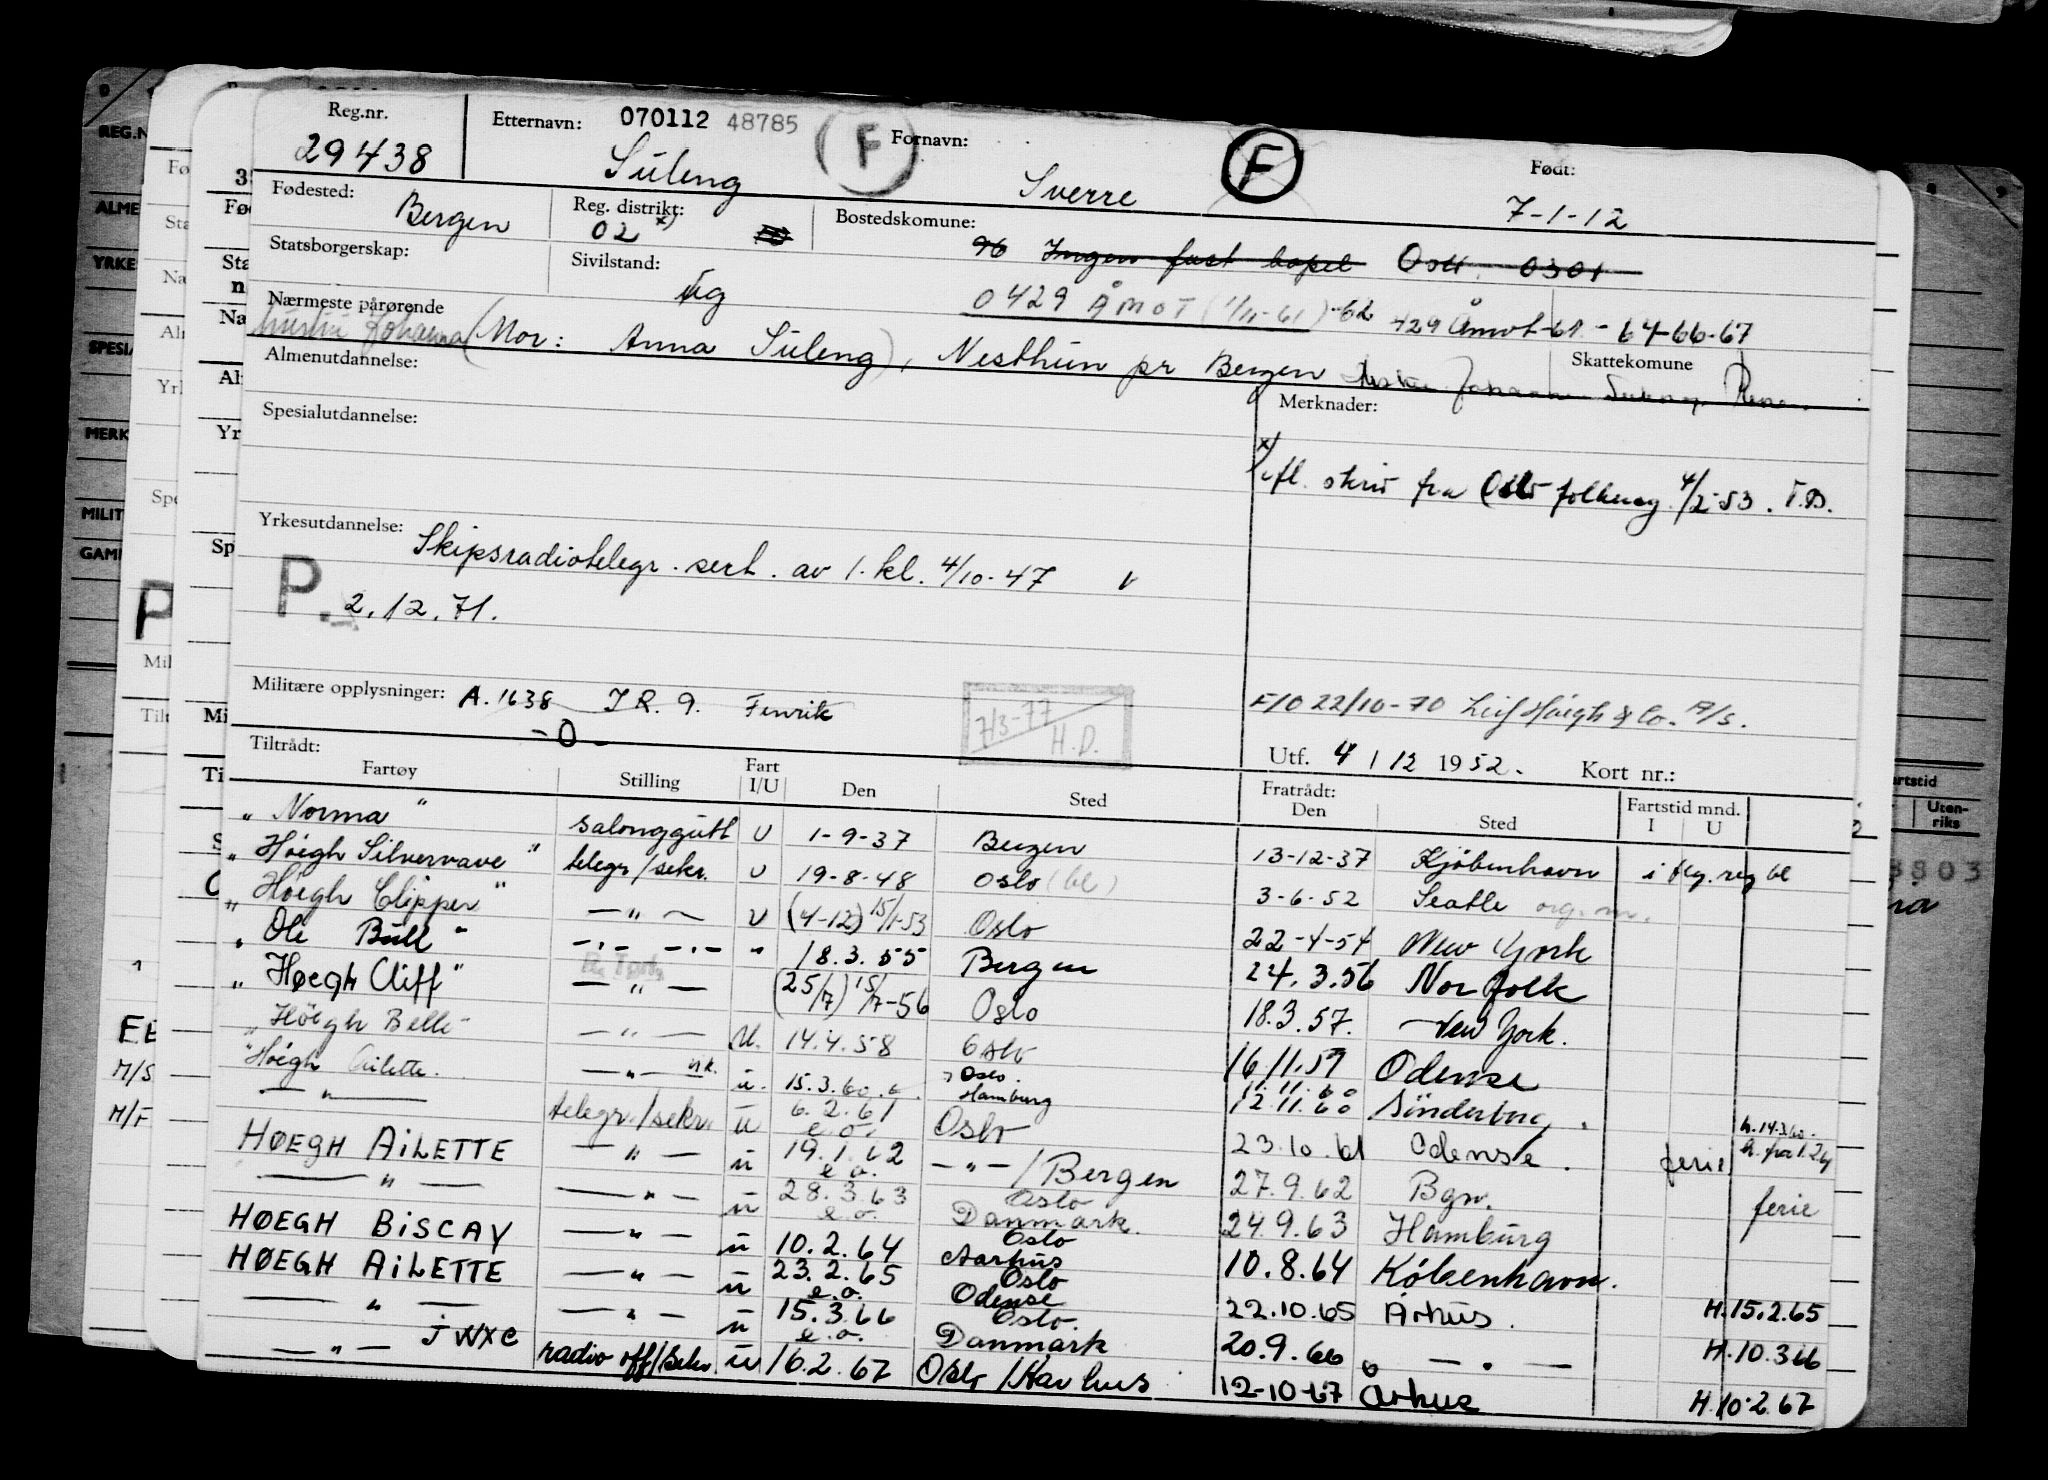 Reg.nr. Etternavn: 070112 48785 F Fornavn: F Født:
29438 Suleng Sverre 7-1-12
Fødested: Bergen Reg. distrikt: 02 x) Bostedskomune: 96 Ingen fast bopel Oslo 0301
Statsborgerskap: Sivilstand: ug 0429 ÅMOT (1/11-61)-62 429 Åmot-61-64-66-67
Nærmeste pårørende Johanna (Mor: Anna Suleng), Nesttun pr Bergen Skattekomune Rena
Almenutdannelse: Merknader:
Spesialutdannelse:
x) ifl. skriv fra Oslo folkereg. 4/2-53. T.D.
Yrkesutdannelse: Skipsradiotelegr. sert. av 1. kl. 4/10-47 v
P. 2.12.71.
Militære opplysninger: A. 1638 I R. 9. Fenrik 7/3-77 H.D. F/O 22/10-70 Leif Höegh & Co. A/S.
-0- Utf. 4 / 12 1952. Kort nr.:
Tiltrådt: Fratrådt: Fartstid mnd.
Fartøy Stilling Fart I/U Den Sted Den Sted I U
"Norma" salonggutt U 1-9-37 Bergen 13-12-37 Kjöbenhavn i flg. reg bl
"Höegh Silverwave" telegr/sekr. U 19-8-48 Oslo (bl) 3-6-52 Seatle
"Höegh Clipper" -"- U (4-12) 15/1-53 Oslo 22-4-54 New York
"Ole Bull" -"- -"- " 18.3.55 Bergen 24.3.56 Norfolk
"Høegh Cliff" -"- (25/7) 15/7-56 Oslo 18.3.57. New York.
"Höegh Belle -"- U. 14.4.58 Oslo 16/11.59 Odense
"Höegh Ailette. -"- u. 15.3.60 Oslo. Hamburg 11.11.60 12.11.60 Sönderborg. h. 14.3.60.
-"- telegr./sekr. u 6.2.61 e.o. Oslo 23.10.61 Odense. ferie
HØEGH AiLETTE -"- u 19.1.62 e.o. -"-/Bergen 27.9.62 Bgn. ferie
-"- -"- u 28.3.63 e.o. Oslo Danmark. 24.9.63 Hamburg
HØEGH BiSCAY -"- u 10.2.64 Oslo Aarhus 10.8.64 København.
HØEGH AiLETTE -"- u 23.2.65 e.o. Oslo Odense 22.10.65 Århus. H.15.2.65
-"- -"- u 15.3.66 e.o. Oslo. Danmark 20.9.66 -"- H.10.3 66
-"- JWXC radio off/sekr. u 16.2.67 Oslo/Aarhus 12-10-67 Århus H.10.2.67